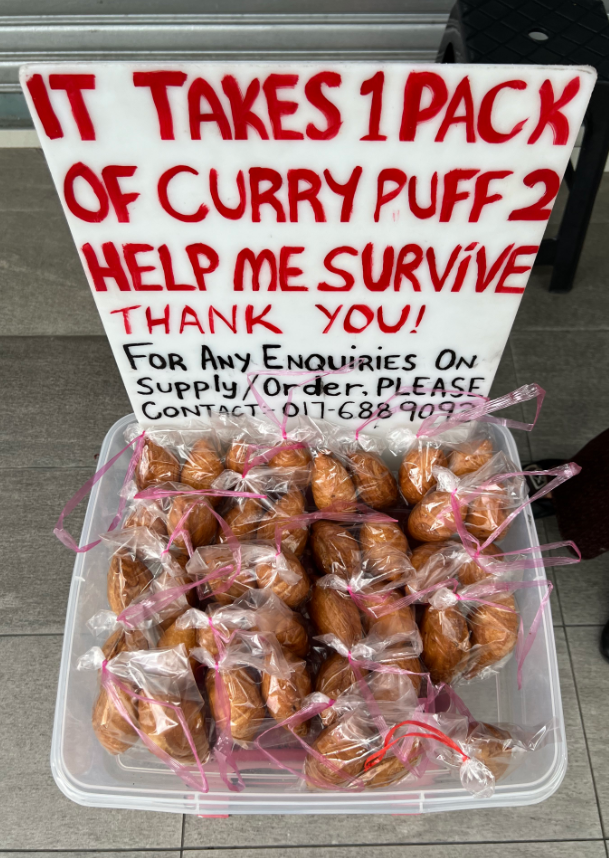 IT TAKES 1 PACK
OF CURRY PUFF 2
HELP ME SURVIVE
THANK YOU!
FOR ANY ENQUIRIES ON
SUPPLY/ORDER, PLEASE
CONTACT:- 017-6889092